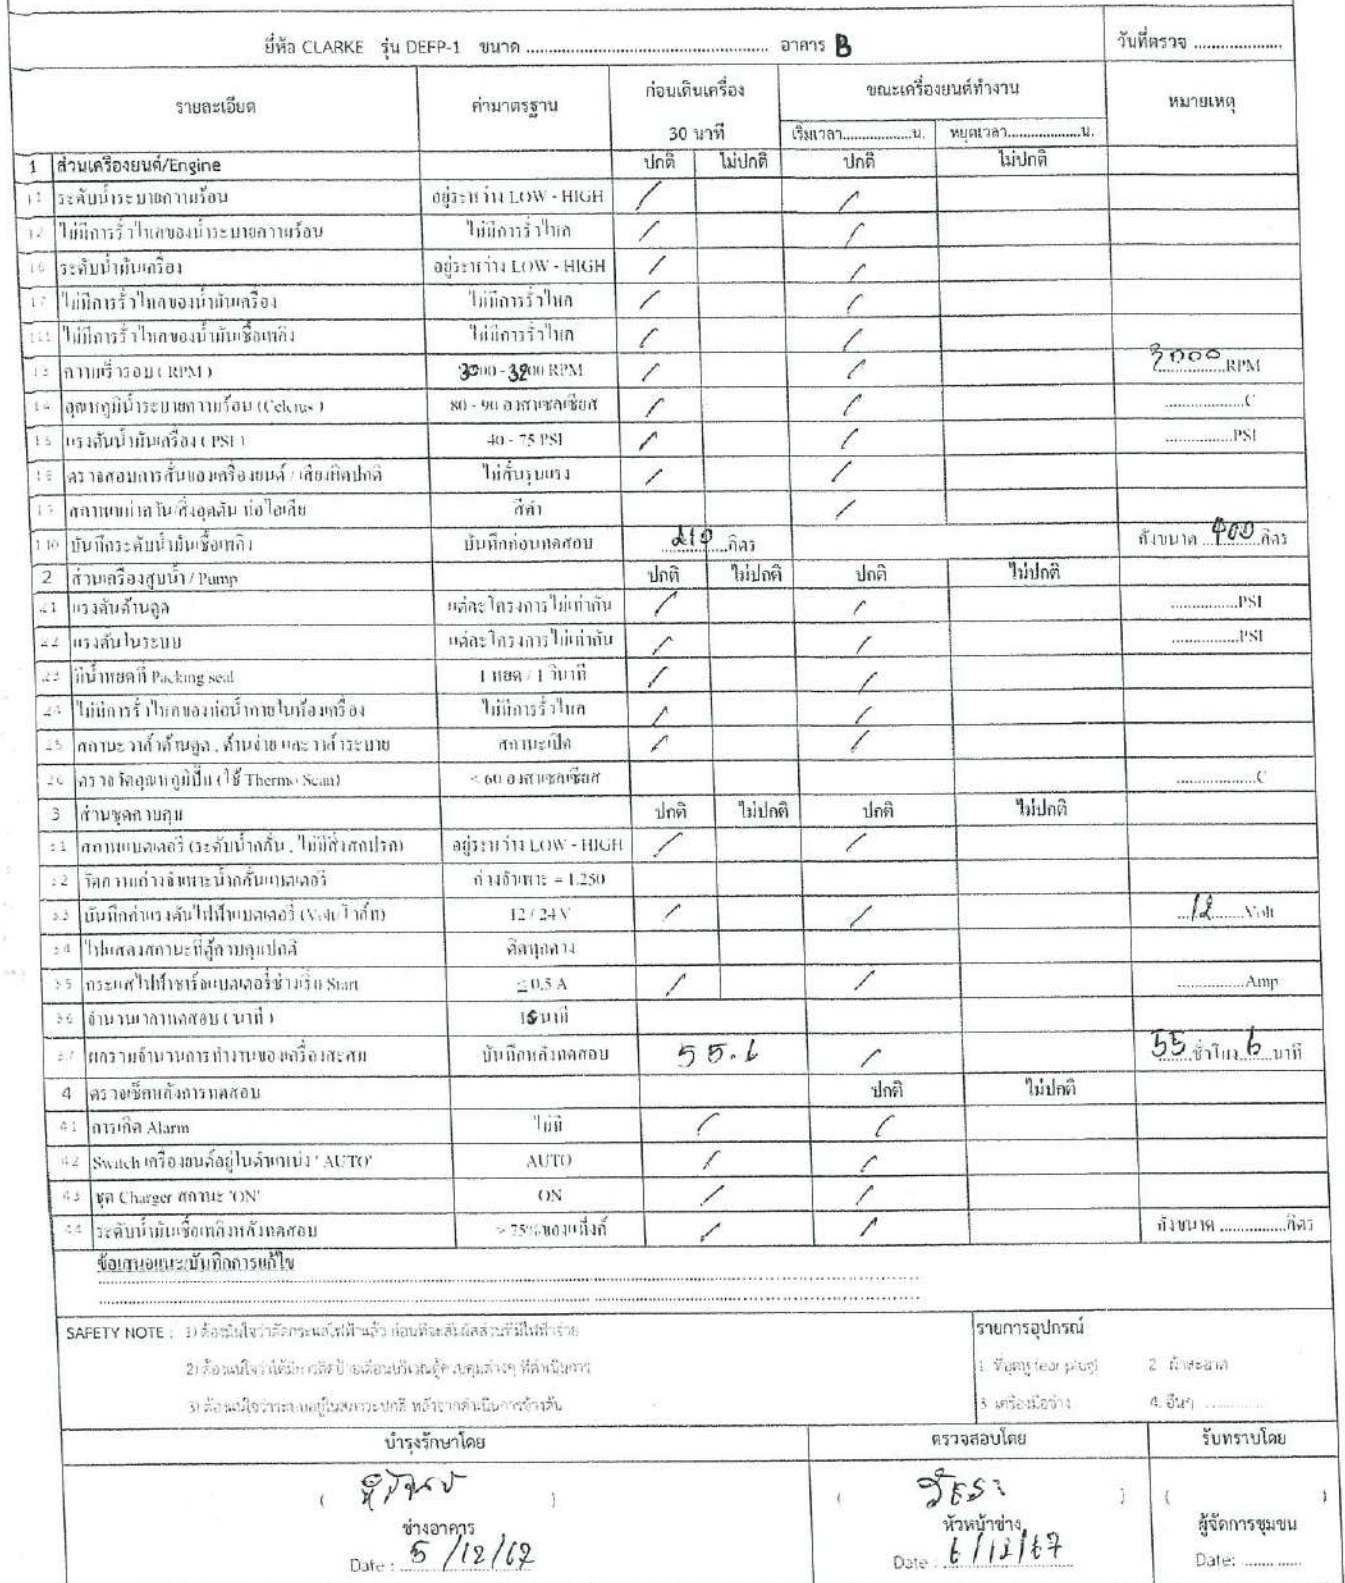 ยี่ห้อ CLARKE รุ่น DEFP-1 ขนาด ........................ อาคาร B วันที่ตรวจ ....................
รายละเอียด ค่ามาตรฐาน ก่อนเดินเครื่อง ขณะเครื่องยนต์ทำงาน หมายเหตุ
30 นาที เริ่มเวลา..................น. หยุดเวลา...................น.
1 ส่วนเครื่องยนต์/Engine ปกติ ไม่ปกติ ปกติ ไม่ปกติ
ระดับน้ำระบายความร้อน อยู่ระหว่าง LOW - HIGH / /
ไม่มีการรั่วไหลของน้ำระบายความร้อน ไม่มีการรั่วไหล / /
ระดับน้ำมันเครื่อง อยู่ระหว่าง LOW - HIGH / /
ไม่มีการรั่วไหลของน้ำมันเครื่อง ไม่มีการรั่วไหล / /
ไม่มีการรั่วไหลของน้ำมันเชื้อเพลิง ไม่มีการรั่วไหล / /
ความเร็วรอบ ( RPM ) 3000 - 3200 RPM / / 3000 RPM
อุณหภูมิน้ำระบายความร้อน (Celcius ) 80 - 90 องศาเซลเซียส / / ....................C
แรงดันน้ำมันเครื่อง ( PSI ) 40 - 75 PSI / / .................PSI
ตรวจสอบการสั่นของเครื่องยนต์ / เสียงผิดปกติ ไม่สั่นรุนแรง / /
สภาพเขม่าควัน/สิ่งอุดตัน ท่อไอเสีย สีดำ /
1.10 บันทึกระดับน้ำมันเชื้อเพลิง บันทึกก่อนทดสอบ 210 ลิตร ถังขนาด 400 ลิตร
2 ส่วนเครื่องสูบน้ำ / Pump ปกติ ไม่ปกติ ปกติ ไม่ปกติ
2.1 แรงดันด้านดูด แต่ละโครงการไม่เท่ากัน / / .................PSI
2.2 แรงดันในระบบ แต่ละโครงการไม่เท่ากัน / / .................PSI
2.3 มีน้ำหยดที่ Packing seal 1 หยด / 1 วินาที / /
2.4 ไม่มีการรั่วไหลของท่อน้ำภายในห้องเครื่อง ไม่มีการรั่วไหล / /
2.5 สถานะวาล์วด้านดูด , ด้านจ่าย และวาล์วระบาย สถานะเปิด / /
2.6 ตรวจวัดอุณหภูมิปั๊ม (ใช้ Thermo Scan) < 60 องศาเซลเซียส ....................C
3 ส่วนชุดควบคุม ปกติ ไม่ปกติ ปกติ ไม่ปกติ
3.1 สภาพแบตเตอรี่ (ระดับน้ำกลั่น , ไม่มีสิ่งสกปรก) อยู่ระหว่าง LOW - HIGH / /
3.2 วัดความถ่วงจำเพาะน้ำกลั่นแบตเตอรี่ ถ่วงจำเพาะ = 1.250
3.3 บันทึกค่าแรงดันไฟฟ้าแบตเตอรี่ (Volt/โวล์ท) 12 / 24 V / / 12 Volt
3.4 ไฟแสดงสถานะที่ตู้ควบคุมปกติ ติดทุกดวง
3.5 กระแสไฟฟ้าชาร์จแบตเตอรี่ช่วงเริ่ม Start ≤ 0.5 A / / .................Amp
3.6 จำนวนเวลาทดสอบ ( นาที ) 15 นาที
3.7 ผลรวมจำนวนการทำงานของเครื่องสะสม บันทึกหลังทดสอบ 55.6 / 55 ชั่วโมง 6 นาที
4 ตรวจเช็คหลังการทดสอบ ปกติ ไม่ปกติ
4.1 การเกิด Alarm ไม่มี / /
4.2 Switch เครื่องยนต์อยู่ในตำแหน่ง ' AUTO' AUTO / /
4.3 ชุด Charger สถานะ 'ON' ON / /
4.4 ระดับน้ำมันเชื้อเพลิงหลังทดสอบ > 75% ของแท้งก์ / / ถังขนาด ...............ลิตร
ข้อเสนอแนะ/บันทึกการแก้ไข
SAFETY NOTE : 1) ต้องมั่นใจว่าตัดกระแสไฟฟ้าแล้ว ก่อนที่จะสัมผัสส่วนที่มีไฟฟ้าจ่าย รายการอุปกรณ์
2) ต้องแน่ใจว่าได้มีการติดป้ายเตือนบริเวณตู้ควบคุมต่างๆ ที่ดำเนินการ 1. ที่อุดหู (ear plug) 2. ผ้าสะอาด
3) ต้องแน่ใจว่าระบบอยู่ในสภาวะปกติ หลังจากดำเนินการข้างต้น 3. เครื่องมือช่าง 4. อื่นๆ ............
บำรุงรักษาโดย ตรวจสอบโดย รับทราบโดย
( ) ( ) ( )
ช่างอาคาร หัวหน้าช่าง ผู้จัดการชุมชน
Date : 5/12/67 Date : 6/12/67 Date: .............